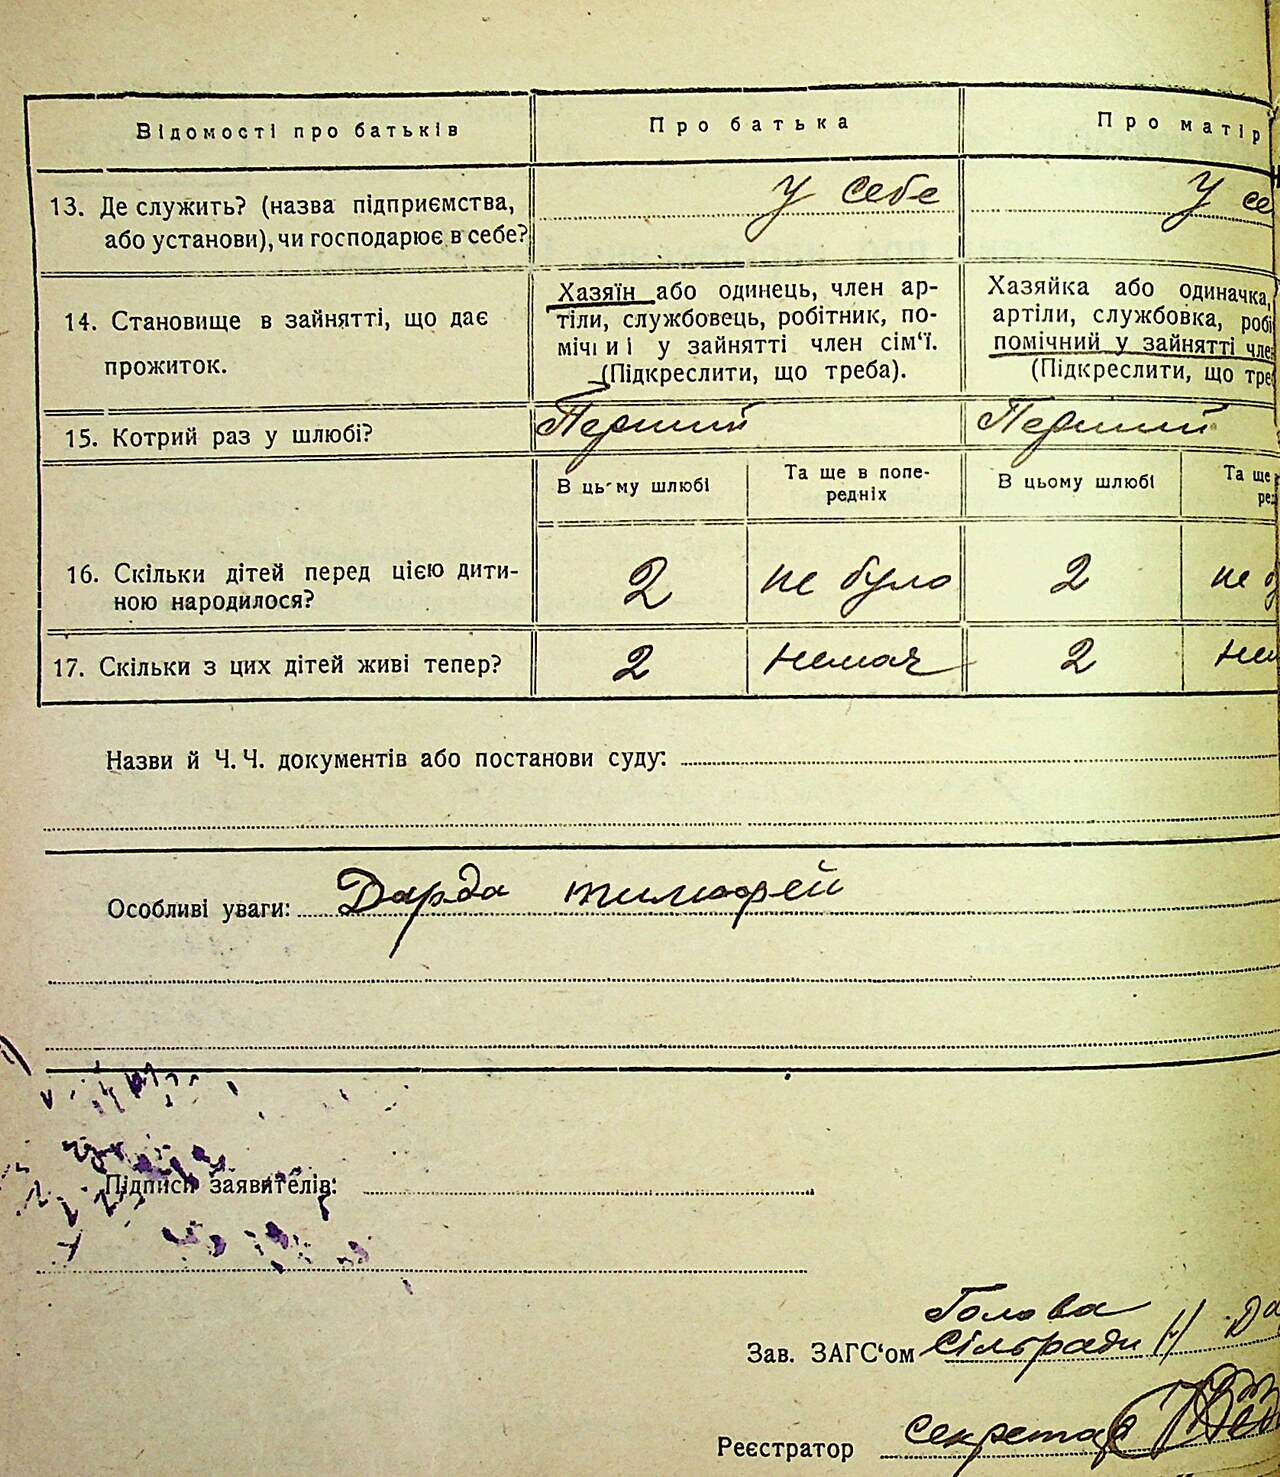 Відомості про батьків
Про батька
Про матір
13. Де служить? (назва підприємства,
або установи), чи господарює в себе?
У себе
У се
14. Становище в зайнятті, що дає
прожиток.
Хазяїн або одинець, член ар-
тіли, службовець, робітник, по-
мічний у зайнятті член сім'ї.
(Підкреслити, що треба).
Хазяйка або одиначка,
артіли, службовка, робі
помічний у зайнятті член
(Підкреслити, що тре
15. Котрий раз у шлюбі?
Перший
Перший
В цьому шлюбі
Та ще в попе-
редніх
В цьому шлюбі
Та ще
ред
16. Скільки дітей перед цією дити-
ною народилося?
2
не було
2
не б
17. Скільки з цих дітей живі тепер?
2
немає
2
нем
Назви й Ч. Ч. документів або постанови суду:
Особливі уваги: Дарда тимофей
Підписи заявителів:
Голова
Зав. ЗАГС'ом Сільради
Реєстратор секретар